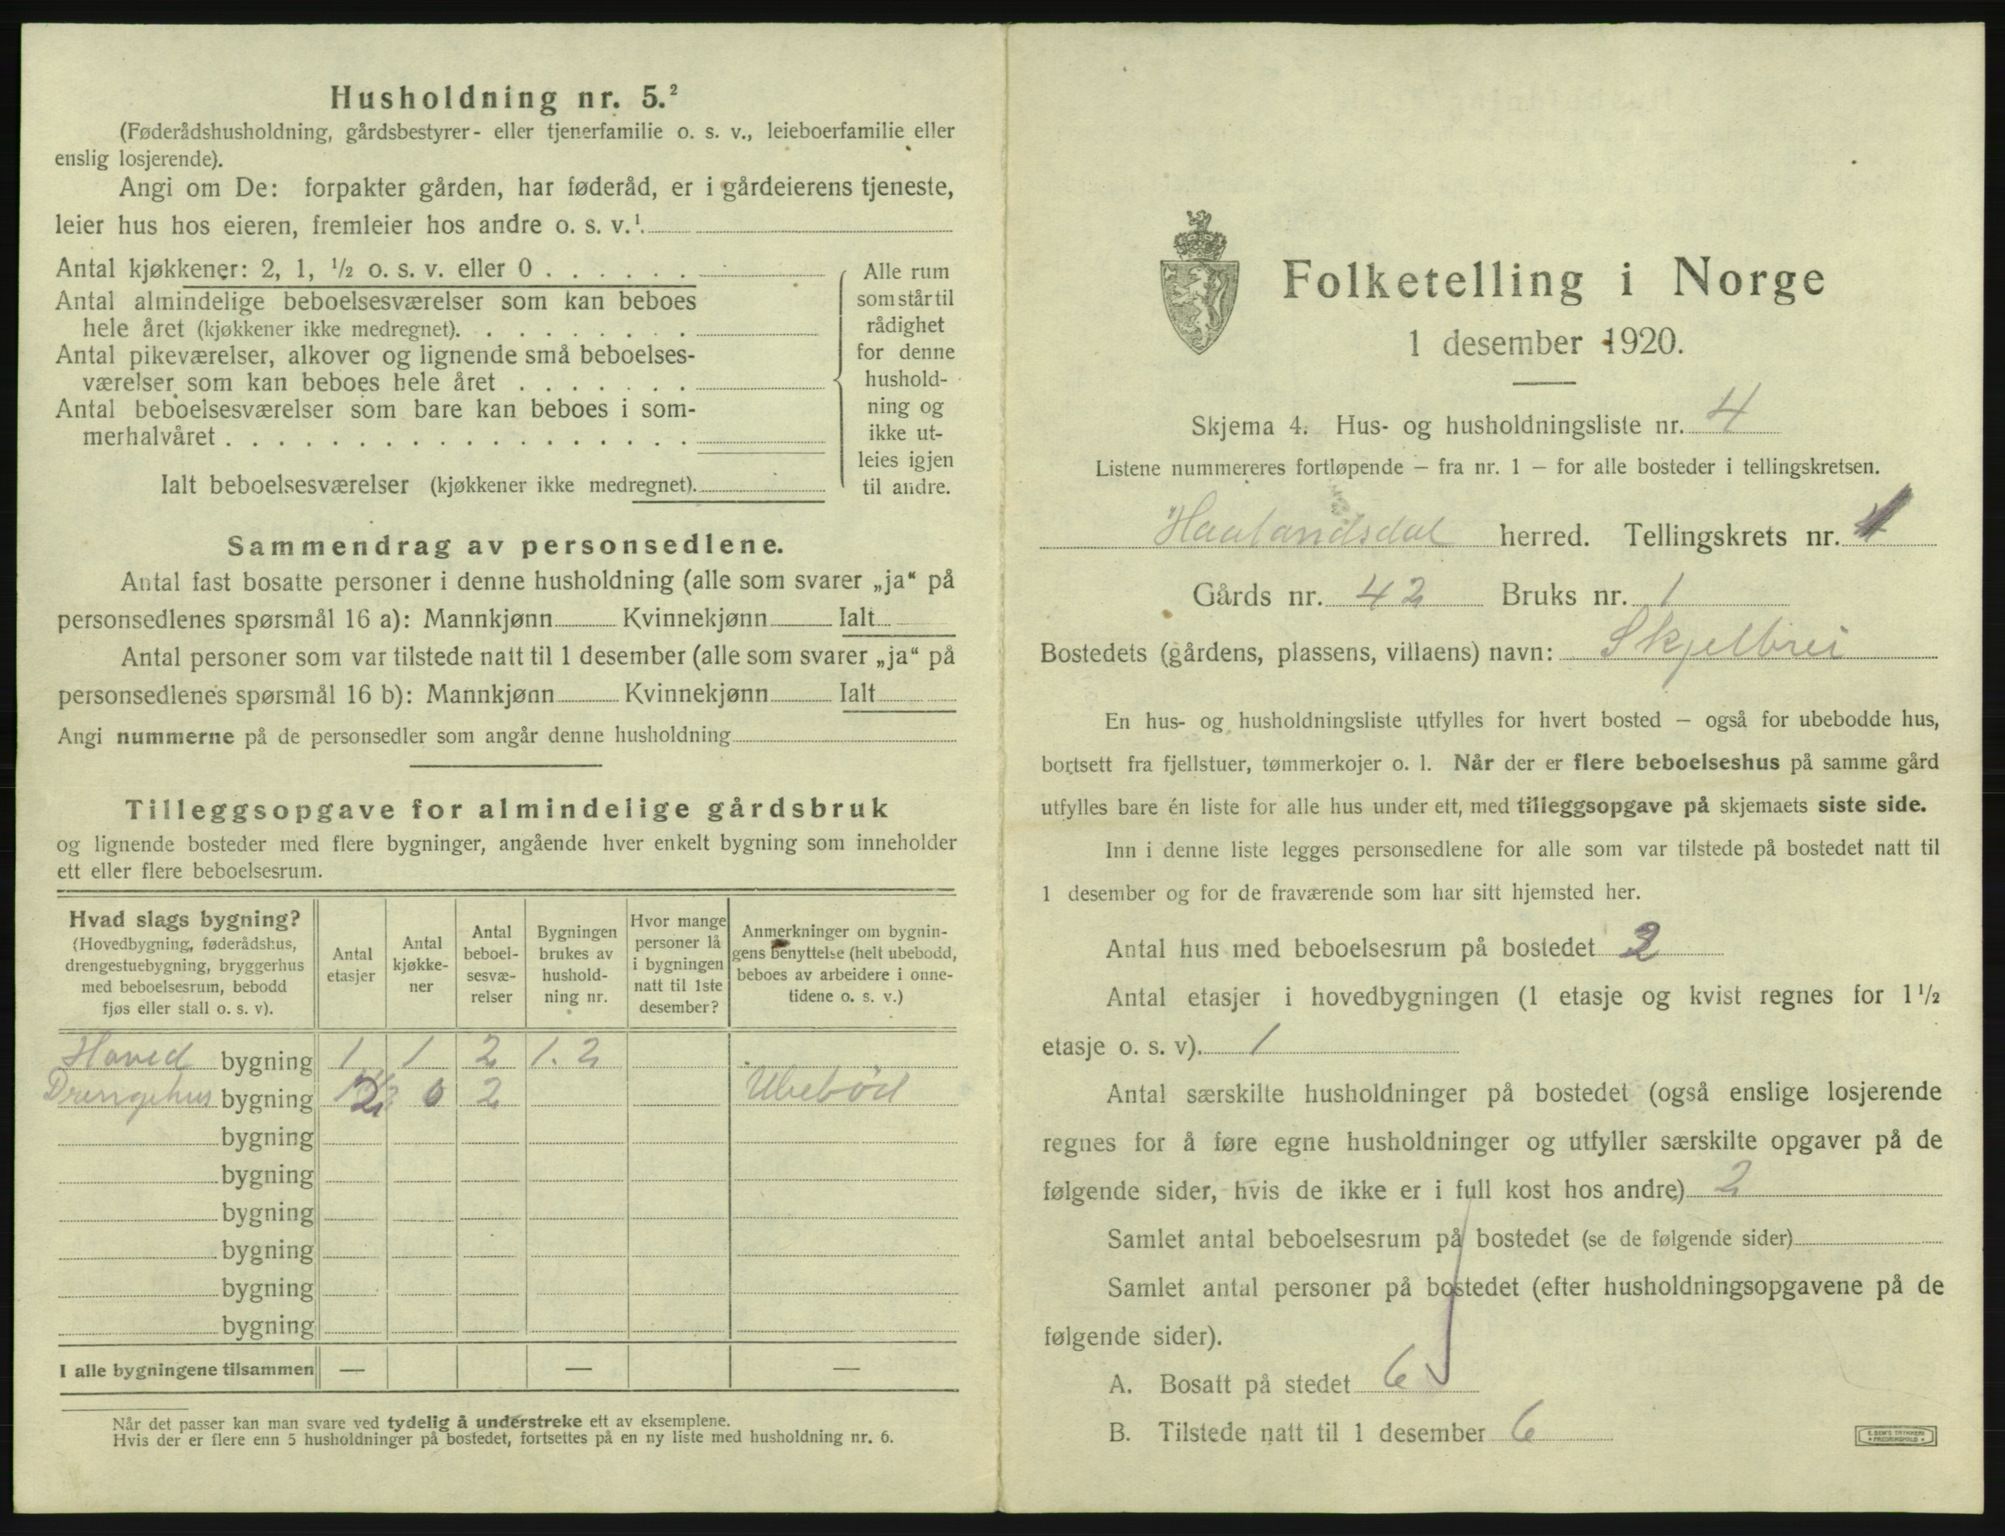 Husholdning nr. 5.²
(Føderådshusholdning, gårdsbestyrer- eller tjenerfamilie o. s. v., leieboerfamilie eller
enslig losjerende).
Angi om De: forpakter gården, har føderåd, er i gårdeierens tjeneste,
leier hus hos eieren, fremleier hos andre o. s. v.¹.
Antal kjøkkener: 2, 1, ½ o. s. v. eller 0 . . . . . .
Antal almindelige beboelsesværelser som kan beboes
hele året (kjøkkener ikke medregnet). . . . . . . . .
Antal pikeværelser, alkover og lignende små beboelses-
værelser som kan beboes hele året . . . . . . .
Antal beboelsesværelser som bare kan beboes i som-
merhalvåret . . . . . . . . . . . . . . . . . .
Ialt beboelsesværelser (kjøkkener ikke medregnet).
Alle rum
som står til
rådighet
for denne
hushold-
ning og
ikke ut-
leies igjen
til andre.
Sammendrag av personsedlene.
Antal fast bosatte personer i denne husholdning (alle som svarer „ja“ på
personsedlenes spørsmål 16 a): Mannkjønn Kvinnekjønn Ialt
Antal personer som var tilstede natt til 1 desember (alle som svarer „ja“ på
personsedlenes spørsmål 16 b): Mannkjønn Kvinnekjønn Ialt
Angi nummerne på de personsedler som angår denne husholdning
Tilleggsopgave for almindelige gårdsbruk
og lignende bosteder med flere bygninger, angående hver enkelt bygning som inneholder
ett eller flere beboelsesrum.
Hvad slags bygning?
(Hovedbygning, føderådshus,
drengestuebygning, bryggerhus
med beboelsesrum, bebodd
fjøs eller stall o. s. v).
Antal
etasjer
Antal
kjøkke-
ner
Antal
beboel-
sesvæ-
relser
Bygningen
brukes av
hushold-
ning nr.
Hvor mange
personer lå
i bygningen
natt til 1ste
desember?
Anmerkninger om bygnin-
gens benyttelse (helt ubebodd,
beboes av arbeidere i onne-
tidene o. s. v.)
Hoved bygning 1 1 2 1. 2
Drengehus bygning 2 0 2 Ubebød
bygning
bygning
bygning
bygning
bygning
bygning
I alle bygningene tilsammen — — —
Når det passer kan man svare ved tydelig å understreke ett av eksemplene.
Hvis der er flere enn 5 husholdninger på bostedet, fortsettes på en ny liste med husholdning nr. 6.
Folketelling i Norge
1 desember 1920.
Skjema 4. Hus- og husholdningsliste nr. 4
Listene nummereres fortløpende — fra nr. 1 — for alle bosteder i tellingskretsen.
Haalandsdal herred. Tellingskrets nr.
Gårds nr. 42 Bruks nr. 1
Bostedets (gårdens, plassens, villaens) navn: Skjelbrei
En hus- og husholdningsliste utfylles for hvert bosted — også for ubebodde hus,
bortsett fra fjellstuer, tømmerkojer o. l. Når der er flere beboelseshus på samme gård
utfylles bare én liste for alle hus under ett, med tilleggsopgave på skjemaets siste side.
Inn i denne liste legges personsedlene for alle som var tilstede på bostedet natt til
1 desember og for de fraværende som har sitt hjemsted her.
Antal hus med beboelsesrum på bostedet 2
Antal etasjer i hovedbygningen (1 etasje og kvist regnes for 1½
etasje o. s. v). 1
Antal særskilte husholdninger på bostedet (også enslige losjerende
regnes for å føre egne husholdninger og utfyller særskilte opgaver på de
følgende sider, hvis de ikke er i full kost hos andre) 2
Samlet antal beboelsesrum på bostedet (se de følgende sider)
Samlet antal personer på bostedet (efter husholdningsopgavene på de
følgende sider).
A. Bosatt på stedet 6
B. Tilstede natt til 1 desember 6